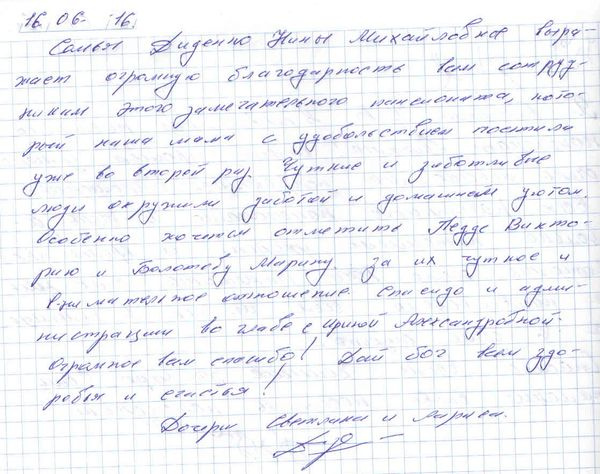 16. 06. 16.
Семья Диденко Нины Михайловне выра-
жает огромную благодарность всем сотруд-
никам этого замечательного пансионата, кото-
рый наша мама с удовольствием посетила
уже во второй раз. Чуткие и заботливые
люди окружили заботой и домашнем уютом.
Особенно хочется отметить Викто-
рию и Болотову Марину за их чуткое и
внимательное отношение. Спасибо и адми-
нистрации во главе с Ириной Александровной.
Огромное вам спасибо! Дай бог всем здо-
ровья и счастья!
Дочери Светлана и Лариса.